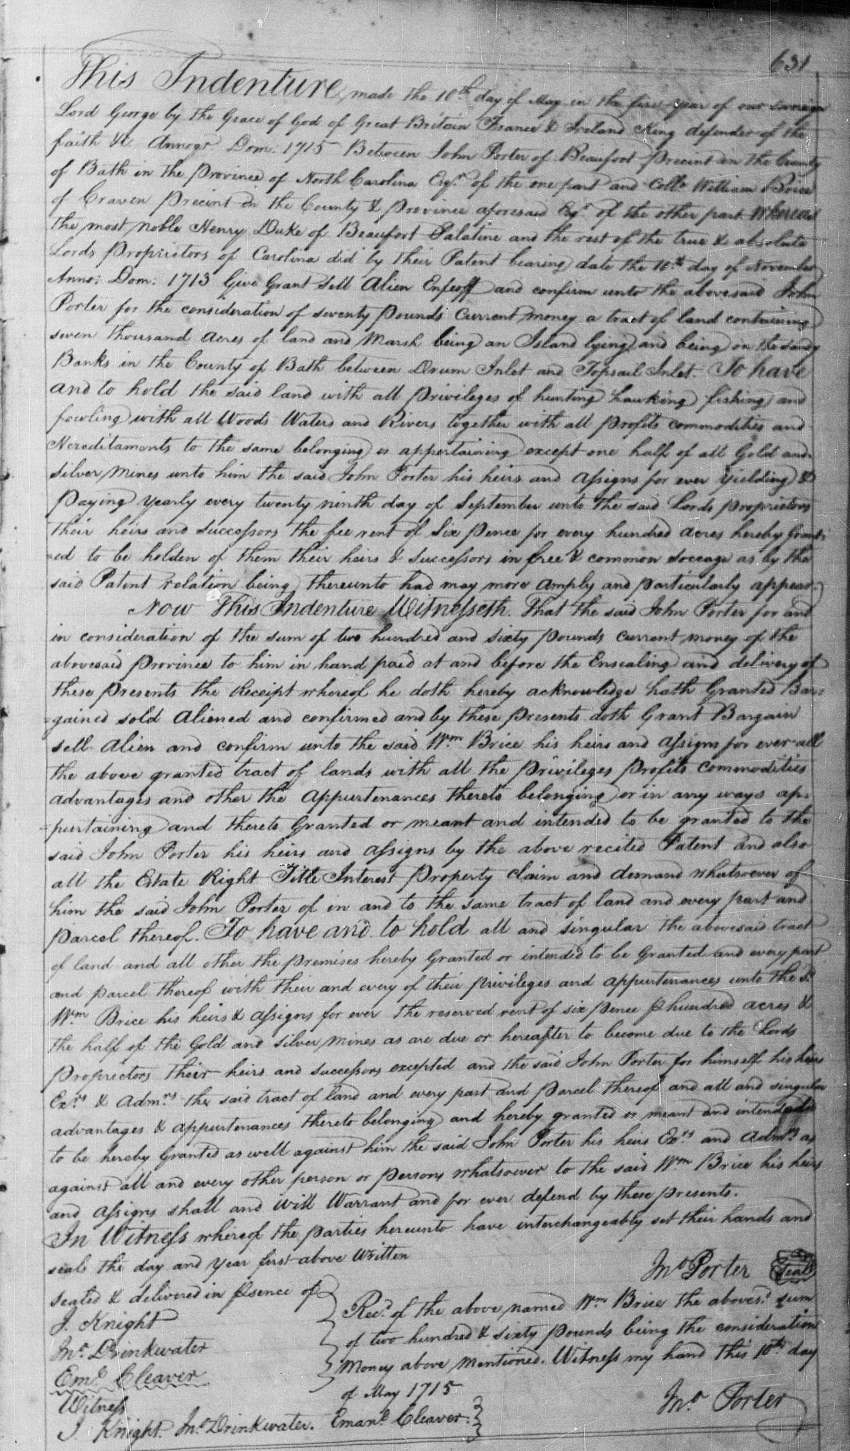 631
This Indenture made the 10th day of May in the first year of our Soveraign
Lord George by the Grace of God of Great Britain France & Ireland King defender of the
faith &c Annoqr Dom: 1715 Between John Porter of Beaufort Precint in the County
of Bath in the Province of North Carolina Esqr. of the one part and Collo. William Brice
of Craven Precint in the County & Province aforesaid Esqr. of the other part Whereas
the most noble Henry Duke of Beaufort Palatine and the rest of the true & absolute
Lords Proprietors of Carolina did by their Patent bearing date the day of November
Anno: Dom: 1713 Give Grant Sell Alien Enfeoff and confirm unto the abovesaid John
Porter for the consideration of seventy Pounds Current money a tract of land containing
seven thousand Acres of land and Marsh being an Island lying and being on the sandy
Banks in the County of Bath between Drum Inlet and Topsail Inlet. To have
and to hold the said land with all Privileges of hunting hawking fishing and
fowling with all Woods Waters and Rivers together with all Profits commodities and
Hereditaments to the same belonging or appertaining except one half of all Gold and
Silver Mines unto him the said John Porter his heirs and Assigns for ever Yielding &
Paying Yearly every twenty ninth day of September unto the said Lords Proprietors
their heirs and successors the fee rent of Six Pence for every hundred Acres hereby Grant-
-ed to be holden of them their heirs & successors in free & common soccage as by the
said Patent relation being thereunto had may more Amply and particularly appear.
Now This Indenture Witnesseth That the said John Porter for and
in consideration of the sum of two hundred and sixty Pounds current money of the
abovesaid Province to him in hand paid at and before the Ensealing and delivery of
these Presents the Receipt whereof he doth hereby acknowledge hath Granted Bar-
gained sold Aliened and confirmed and by these Presents doth Grant Bargain
sell Alien and confirm unto the said Wm Brice his heirs and Assigns for ever all
the above granted tract of lands with all the Privileges Profits Commodities
advantages and other the Appurtenances thereto belonging or in any ways ap-
purtaining and thereto Granted or meant and intended to be granted to the
said John Porter his heirs and Assigns by the above recited Patent and also
all the Estate Right Title Interest Property Claim and demand whatsoever of
him the said John Porter of in and to the same tract of land and every part and
Parcel thereof. To have and to hold all and singular the abovesaid tract
of land and all other the Premises hereby Granted or intended to be Granted and every part
and Parcel thereof with their and every of their Privileges and Appurtenances unto the sd.
Wm Brice his heirs & Assigns for ever the reserved rent of six Pence P hundred acres &
the half of the Gold and Silver mines as are due or hereafter to become due to the Lords
Proprietors their heirs and successors excepted and the said John Porter for himself his heirs
Exrs & Admrs the said tract of land and every part and Parcel thereof and all and singular
advantages & appurtenances thereto belonging and hereby granted or meant and intended
to be hereby Granted as well against him the said John Porter his heirs Exrs and Admrs as
against all and every other person or persons whatsoever to the said Wm Brice his heirs
and Assigns shall and will Warrant and for ever defend by these Presents.
In Witness whereof the parties hereunto have interchangeably set their hands and
seals the day and year first above Written
Jno Porter Seal
Sealed & delivered in Presence of
J. Knight
Jno. Drinkwater
Eml. Cleaver
Recd. of the above named Wm Brice the abovesd. sum
of two hundred & sixty Pounds being the consideration
Money above Mentioned. Witness my hand this 10th day
of May 1715
Jno. Porter
Witness
J. Knight. Jno. Drinkwater. Emanl. Cleaver.